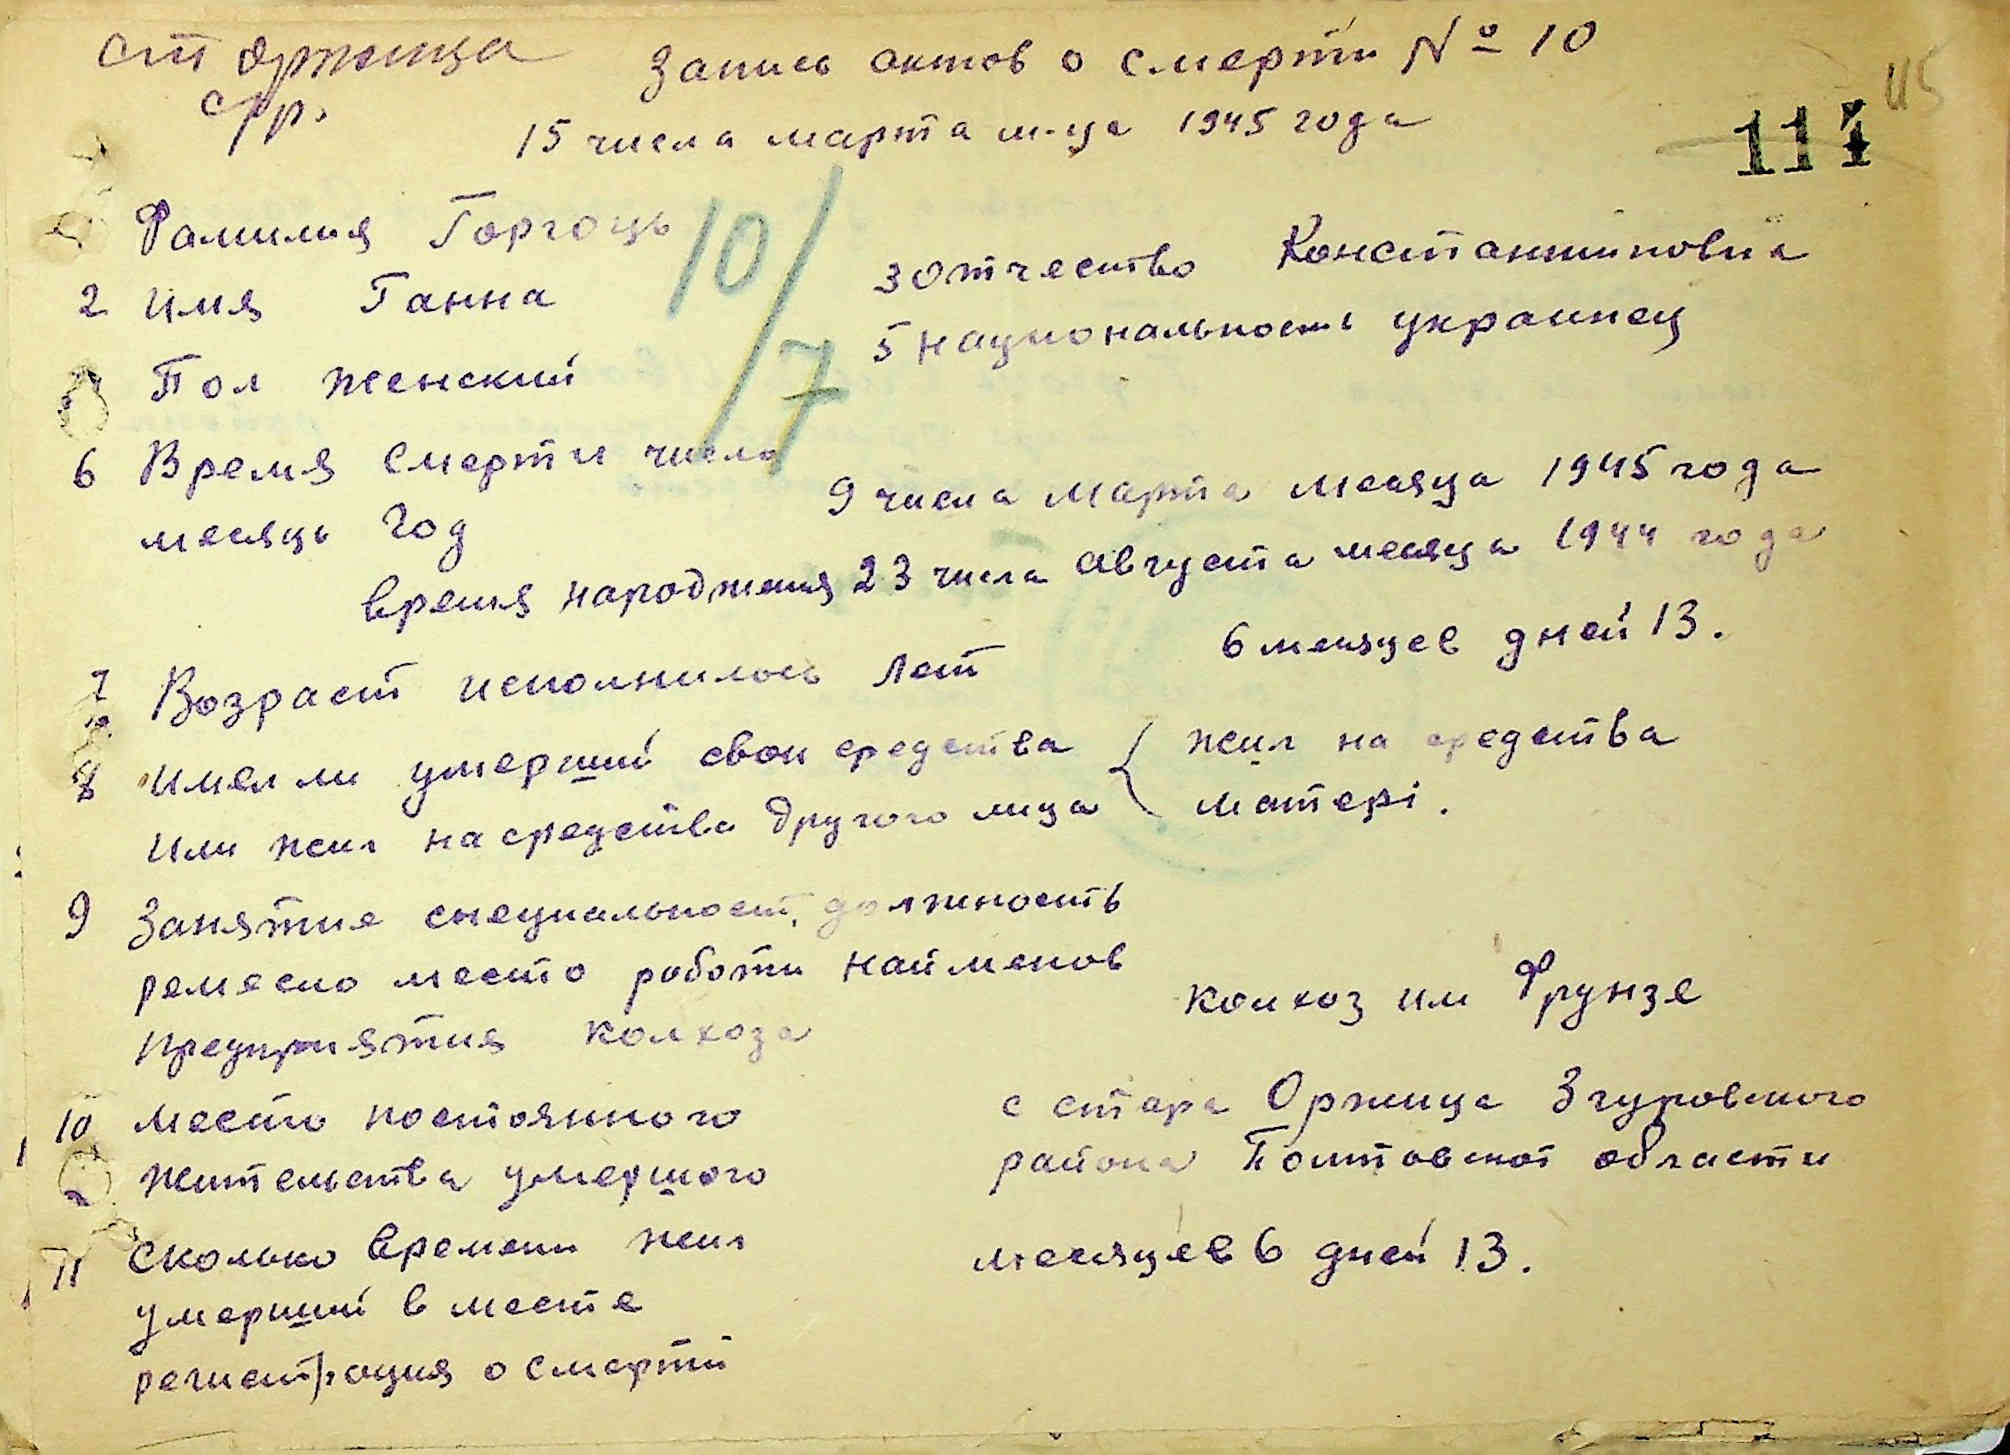 ст оржица
Запись актов о смерти № 10
115
фр.
15 числа марта м-ца 1945 года
114
Фамилия Горгоць
10/7
3 отчество Константиновна
2 имя Ганна
5 национальность украинец
Пол женский
6 Время смерти числа
месяць год
9 числа марта месяца 1945 года
время народжения 23 числа августа месяца 1944 года
7 Возраст исполнилось лет
6 месяцев дней 13.
8 имел ли умерший свои средства
или жил на средства другого лица
{ жил на средства
матері.
9 Занятие специальност, должность
ремесло место работи найменов
предприятия колхоза
колхоз им Фрунзе
10 место постоянного
жительства умершого
с стара Оржица Згуровского
района Полтавской области
11 сколько времени жил
умерший в месте
регистрация о смерти
месяцев 6 дней 13.